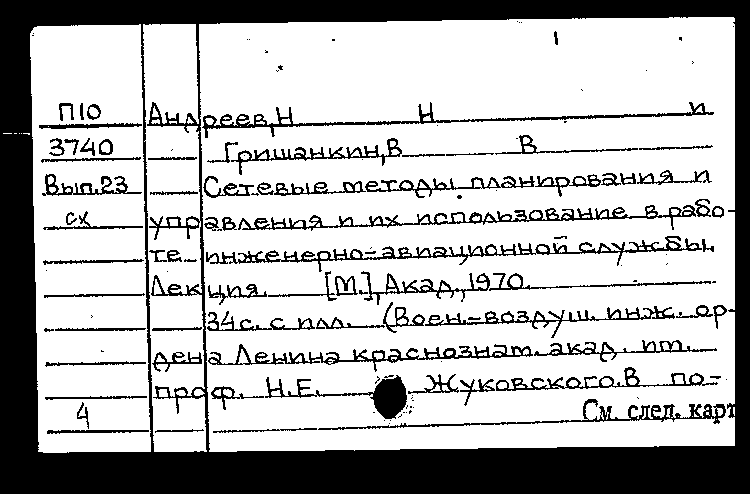 П10 Андреев, Н Н и
3740 Гришанкин, В В
Вып.23 Сетевые методы планирования и
сх управления и их использование в рабо-
те инженерно-авиационной службы.
Лекция. [М.], Акад., 1970.
34с. с илл. (Воен.-воздуш. инж. ор-
дена Ленина краснознам. акад. им.
проф. Н.Е. Жуковского. В по-
4 См. след. карт